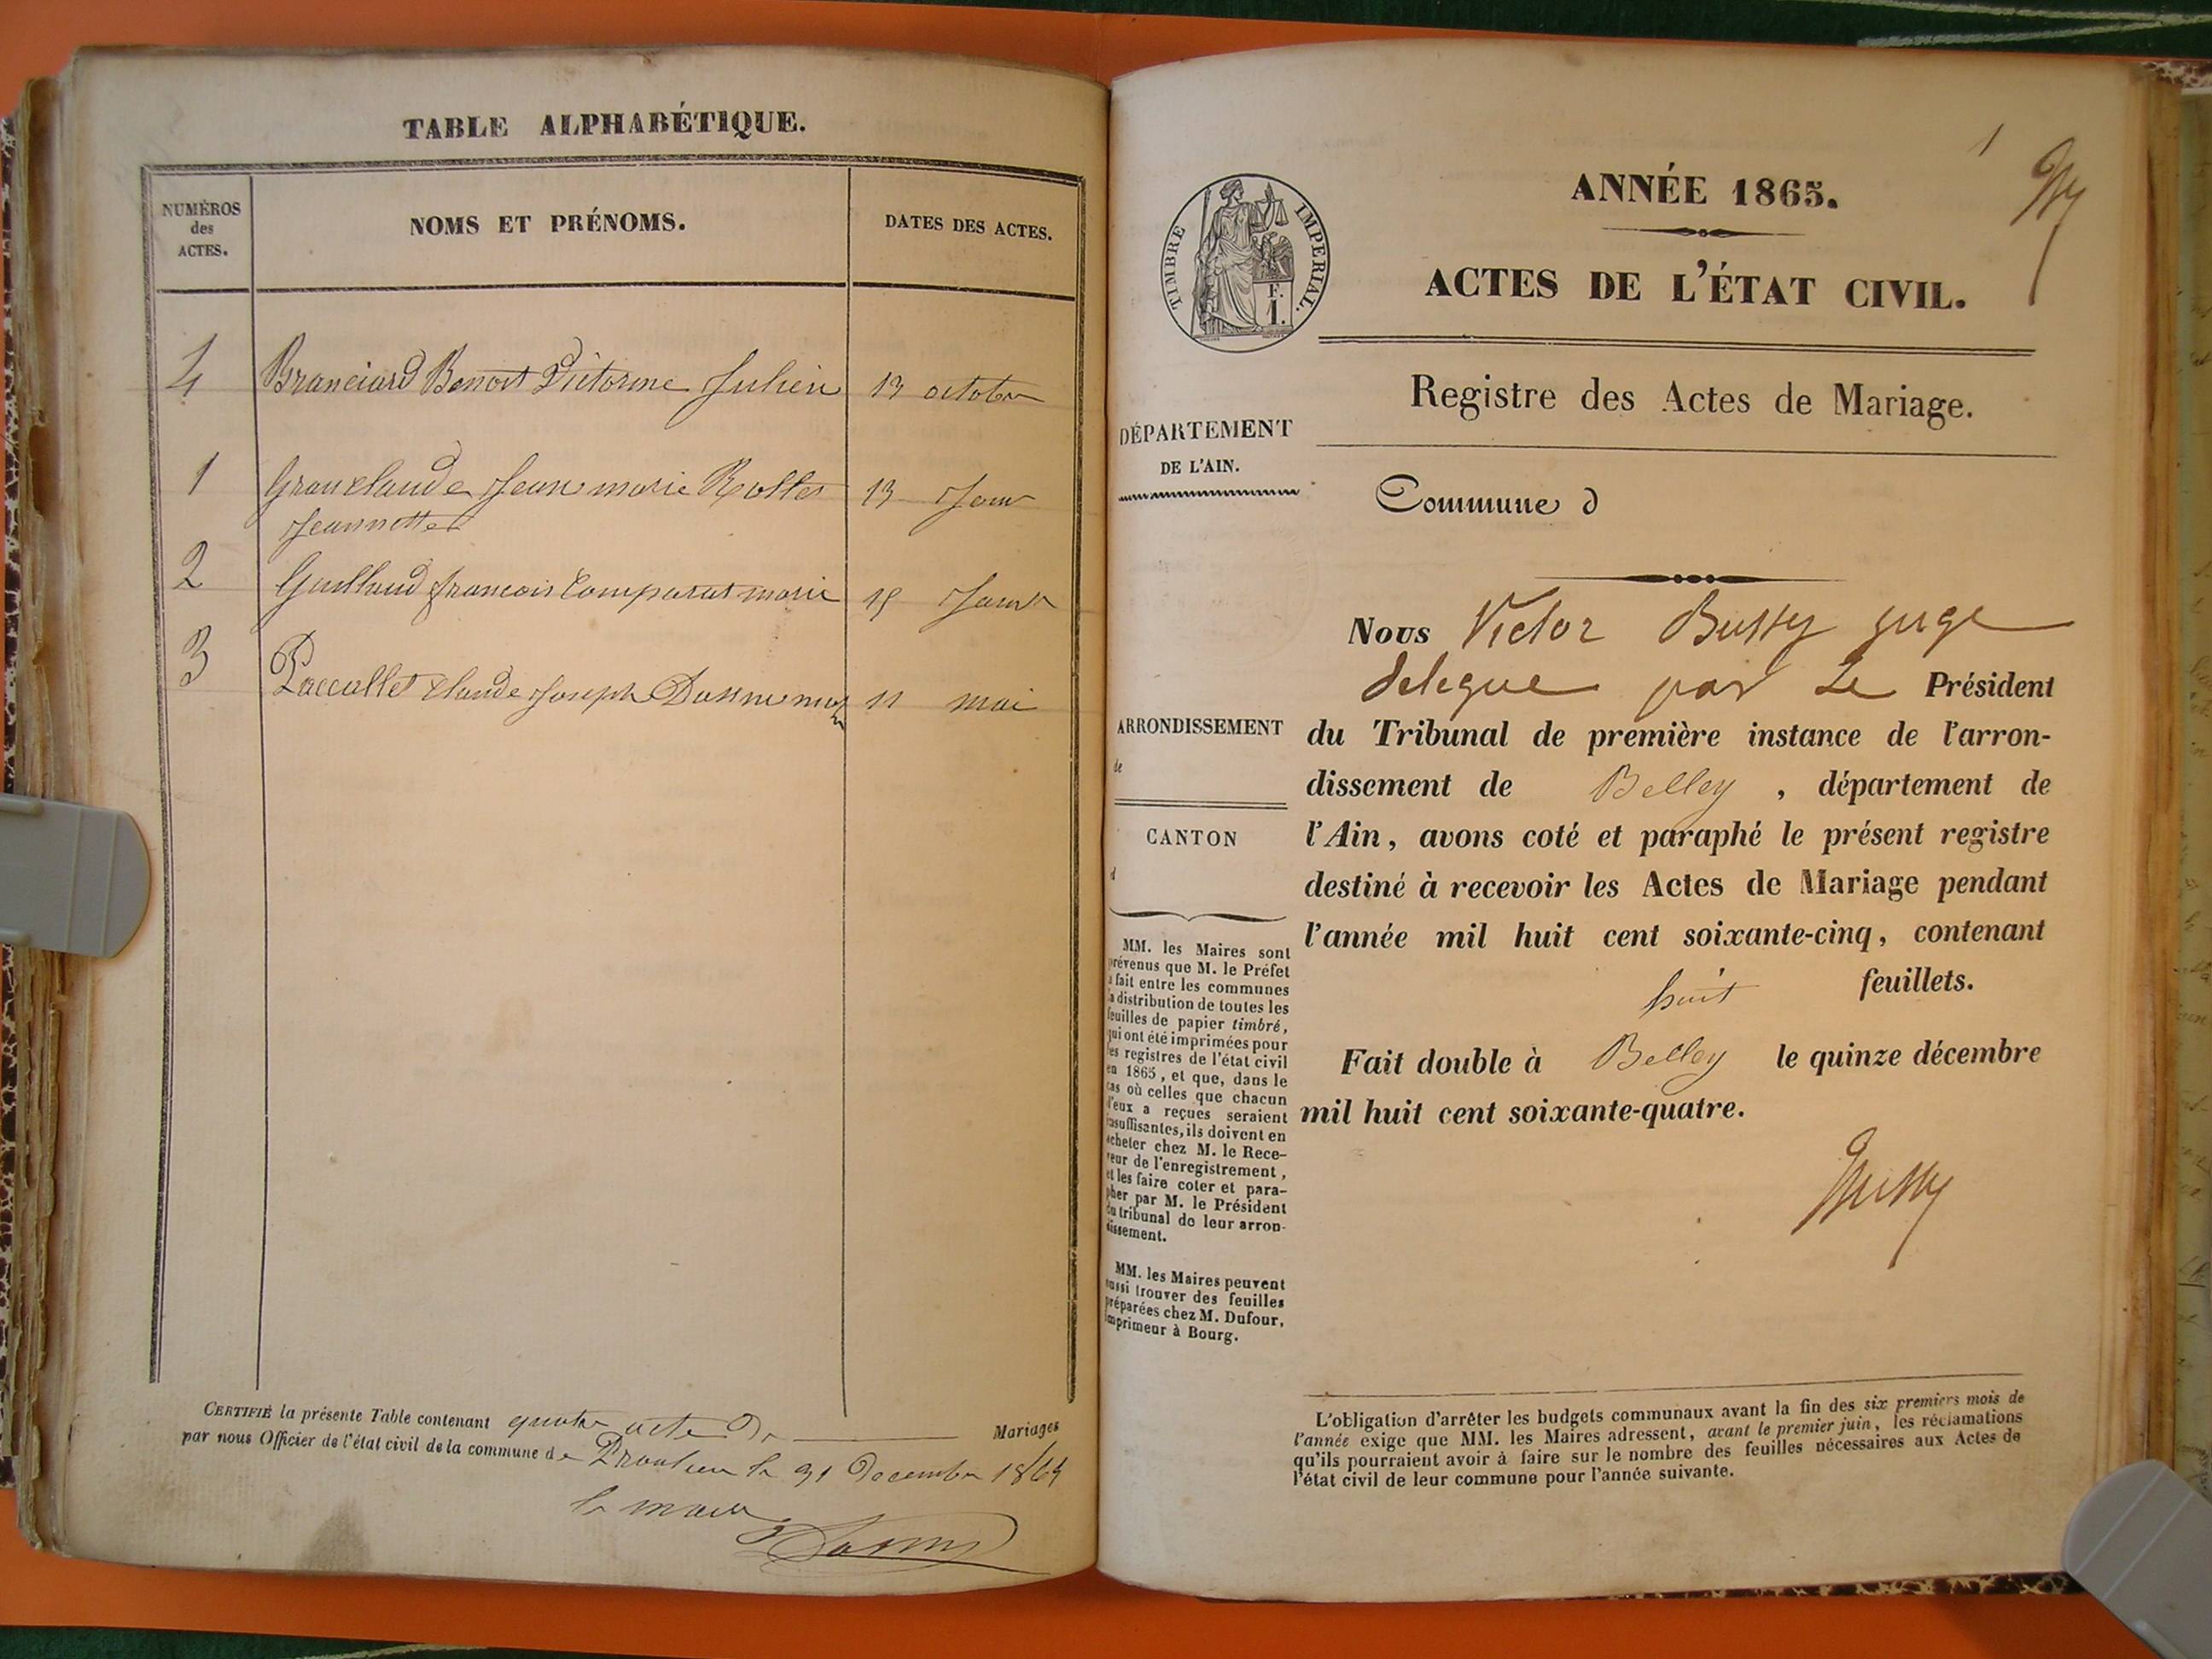 TABLE ALPHABÉTIQUE.
NUMÉROS
des
ACTES.
NOMS ET PRÉNOMS.
DATES DES ACTES.
4 Branciard Benoit Victorine Julien 13 octobre
1 Granclaude Jean marie Rollet 13 Janv
Jeannette
2 Guillaud francois Comparat marie 15 Janv
3 Paccallet Claude Joseph 11 mai
CERTIFIÉ la présente Table contenant quatre acte De Mariages
par nous Officier de l'état civil de la commune de le 31 Decembre 1864
le maire
1
ANNÉE 1865.
TIMBRE IMPERIAL.
F.
1.
ACTES DE L'ÉTAT CIVIL.
Registre des Actes de Mariage.
DÉPARTEMENT
DE L'AIN.
Commune d
Nous Victor Bussy juge
delegue par Le Président
ARRONDISSEMENT
de
CANTON
d
du Tribunal de première instance de l'arron-
dissement de Belley , département de
l'Ain, avons coté et paraphé le présent registre
destiné à recevoir les Actes de Mariage pendant
l'année mil huit cent soixante-cinq, contenant
huit feuillets.
Fait double à Belley le quinze décembre
mil huit cent soixante-quatre.
Bussy
MM. les Maires sont
prévenus que M. le Préfet
a fait entre les communes
la distribution de toutes les
feuilles de papier timbré,
qui ont été imprimées pour
les registres de l'état civil
en 1865, et que, dans le
cas où celles que chacun
d'eux a reçues seraient
insuffisantes, ils doivent en
acheter chez M. le Rece-
veur de l'enregistrement,
et les faire coter et para-
pher par M. le Président
du tribunal de leur arron-
dissement.
MM. les Maires peuvent
aussi trouver des feuilles
préparées chez M. Dufour,
imprimeur à Bourg.
L'obligation d'arrêter les budgets communaux avant la fin des six premiers mois de
l'année exige que MM. les Maires adressent, avant le premier juin, les réclamations
qu'ils pourraient avoir à faire sur le nombre des feuilles nécessaires aux Actes de
l'état civil de leur commune pour l'année suivante.